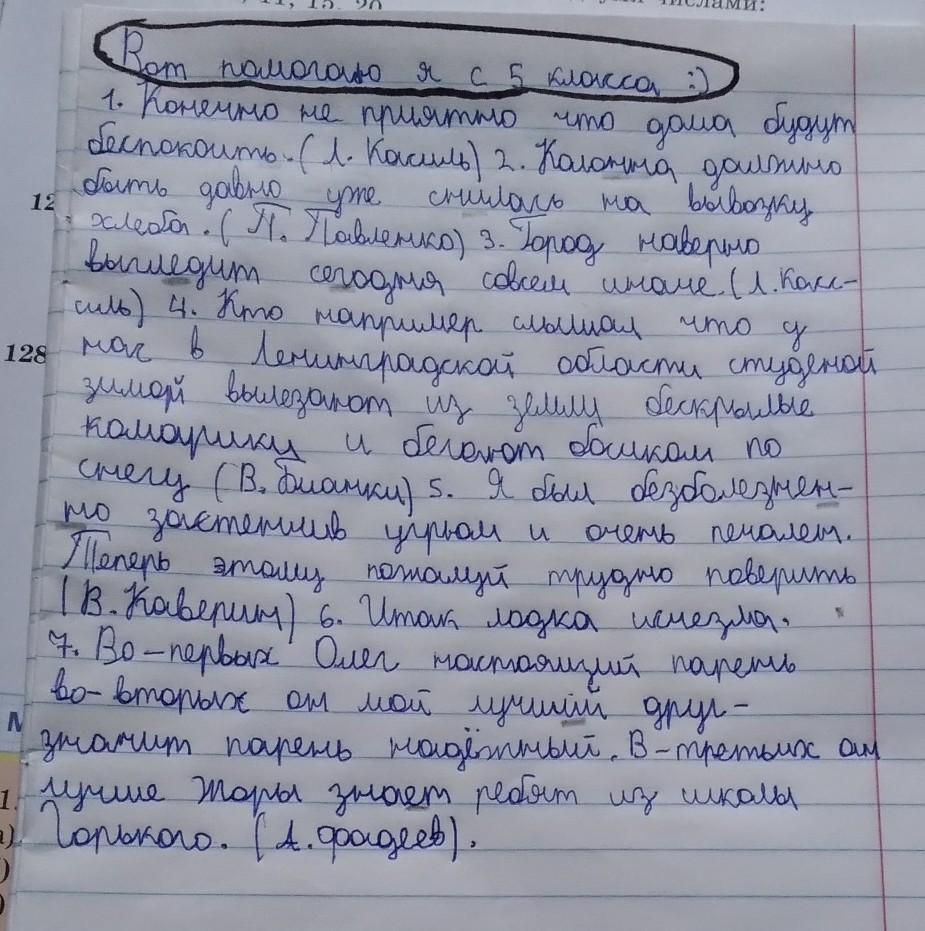 Вот помогаю я с 5 класса :)
1. Конечно не приятно что дома будут
беспокоить. (Л. Касиль) 2. Колонна должно
быть давно уже снилась на вывозку
12
хлеба. (П. Павленко) 3. Город наверно
выгледит сегодня совсем иначе. (Л. Касс-
иль) 4. Кто например слышал что у
128 нас в Ленинградской области студеной
зимой вылезают из земли бескрылые
комарики и бегают босиком по
снегу (В. Бианки) 5. Я был безболезнен-
но застенчив угрюм и очень печален.
Теперь этому пожалуй трудно поверить
(В. Каверин) 6. Итак лодка исчезла.
7. Во-первых Олег настоящий парень
во-вторых он мой лучший друг-
значит парень надёжный. В-третьих он
1. лучше Жоры знает ребят из школы
Горького. (А. Фадеев).